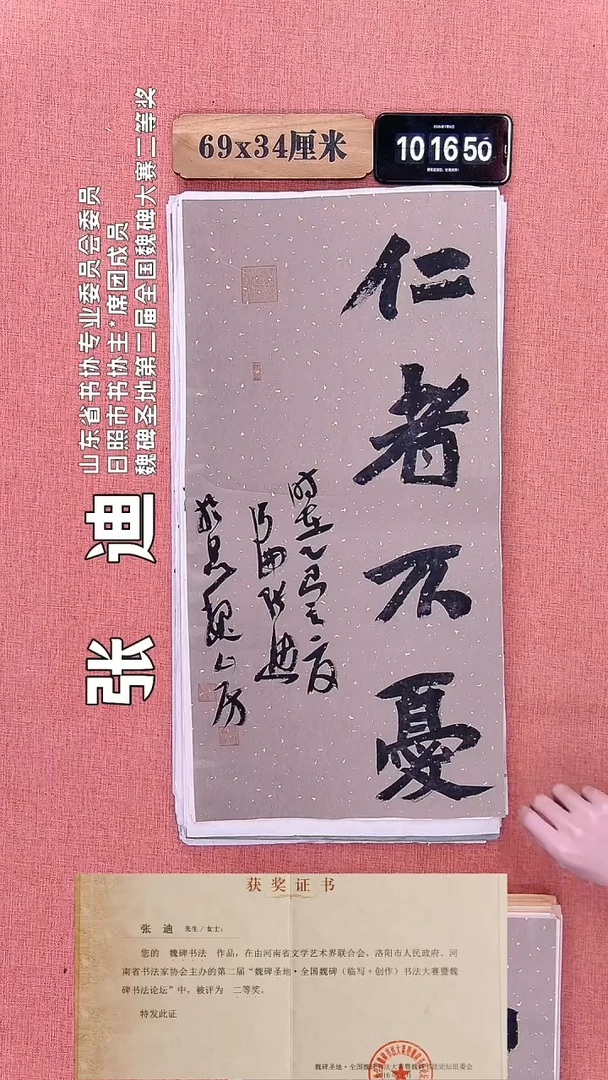 69x34厘米
10 16 50
山东省书协专业委员会委员
日照市书协主*席团成员
魏碑圣地第二届全国魏碑大赛二等奖
张 迪
仁者不憂
时在乙巳之夏
河西张迪
获奖证书
张 迪 先生/女士:
您的 魏碑书法 作品，在由河南省文学艺术界联合会、洛阳市人民政府、河
南省书法家协会主办的第二届“魏碑圣地·全国魏碑（临写+创作）书法大赛暨魏
碑书法论坛”中，被评为 二等奖。
特发此证
魏碑圣地·全国魏碑书法大赛暨魏碑书法论坛组委会